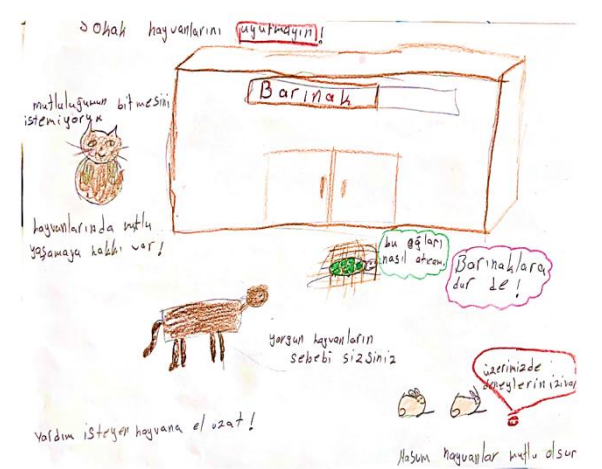 Sokak hayvanlarını uyutmayın!
Barınak
mutluluğumun bitmesini
istemiyorum
hayvanlarında mutlu
yaşamaya hakkı var!
bu ağları
nasıl atcam.
Barınaklara
dur de!
yorgun hayvanların
sebebi sizsiniz
üzerimizde
deneylerin izi var
Yardım isteyen hayvana el uzat!
Masum hayvanlar mutlu olsun